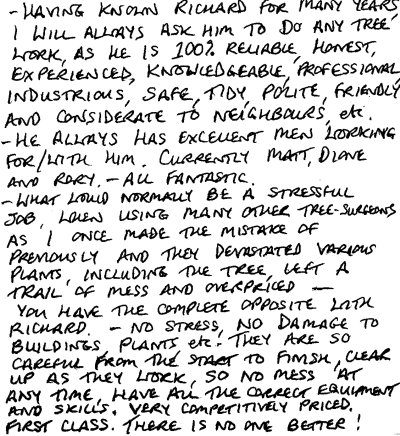 - HAVING KNOWN RICHARD FOR MANY YEARS
I WILL ALWAYS ASK HIM TO DO ANY TREE
WORK, AS HE IS 100% RELIABLE, HONEST,
EXPERIENCED, KNOWLEDGEABLE, PROFESSIONAL
INDUSTRIOUS, SAFE, TIDY, POLITE, FRIENDLY
AND CONSIDERATE TO NEIGHBOURS, etc.
- HE ALWAYS HAS EXCELLENT MEN WORKING
FOR/WITH HIM. CURRENTLY MATT, DIONE
AND RORY. - ALL FANTASTIC.
- WHAT WOULD NORMALLY BE A STRESSFUL
JOB, WHEN USING MANY OTHER TREE-SURGEONS
AS I ONCE MADE THE MISTAKE OF
PREVIOUSLY AND THEY DEVASTATED VARIOUS
PLANTS, INCLUDING THE TREE, LEFT A
TRAIL OF MESS AND OVERPRICED —
YOU HAVE THE COMPLETE OPPOSITE WITH
RICHARD. - NO STRESS, NO DAMAGE TO
BUILDINGS, PLANTS etc. THEY ARE SO
CAREFUL FROM THE START TO FINISH, CLEAR
UP AS THEY WORK, SO NO MESS AT
ANY TIME, HAVE ALL THE CORRECT EQUIPMENT
AND SKILLS. VERY COMPETITIVELY PRICED.
FIRST CLASS. THERE IS NO ONE BETTER!